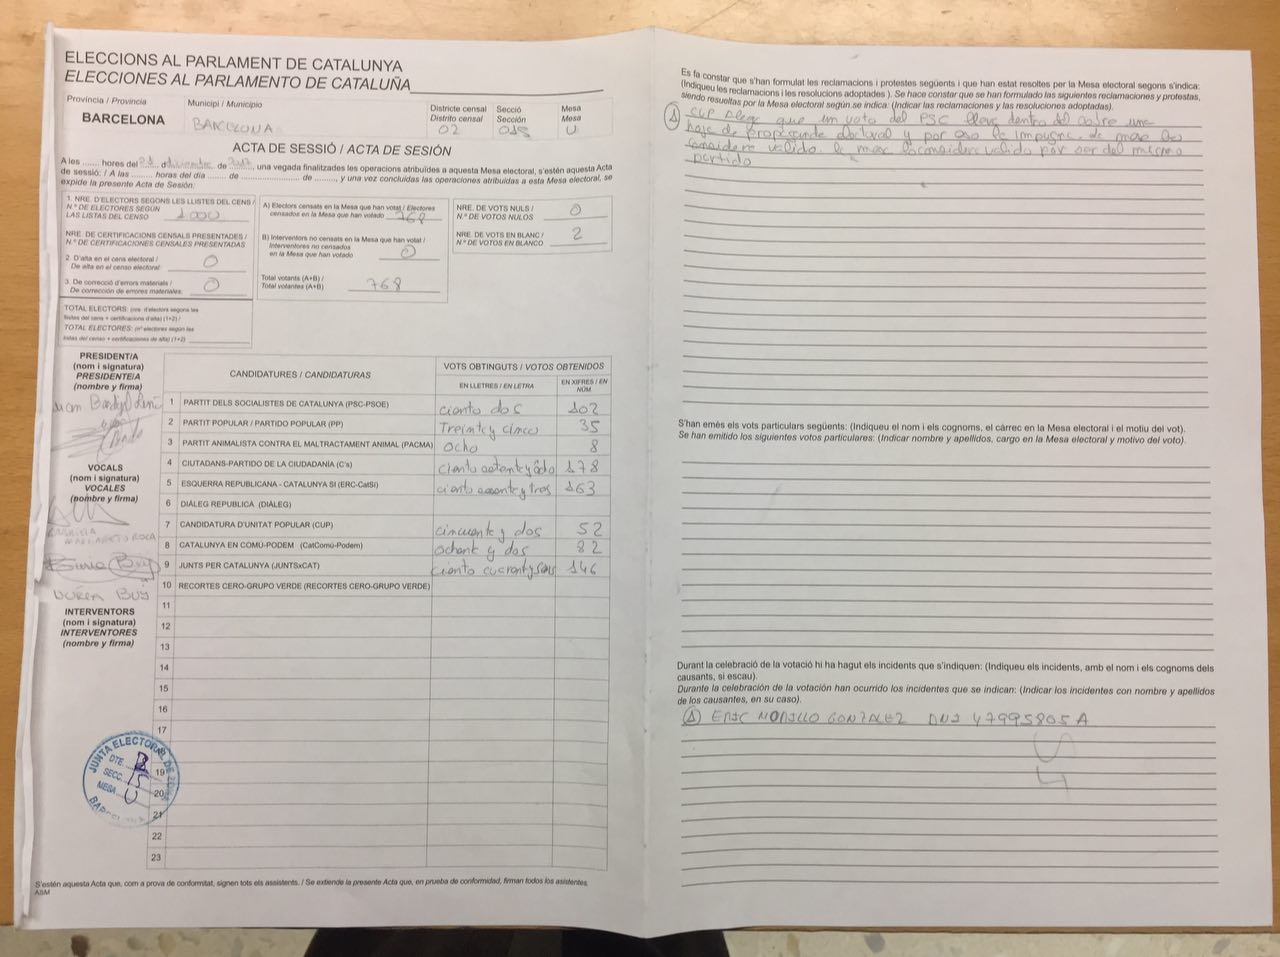 ELECCIONS AL PARLAMENT DE CATALUNYA
ELECCIONES AL PARLAMENTO DE CATALUÑA
Província / Provincia
BARCELONA
Municipi / Municipio
BARCELONA
Districte censal
Distrito censal
02
Secció
Sección
015
Mesa
Mesa
U
ACTA DE SESSIÓ / ACTA DE SESIÓN
A les ........ hores del 21 d desembre de 2017, una vegada finalitzades les operacions atribuïdes a aquesta Mesa electoral, s'estén aquesta Acta
de sessió: / A las ........ horas del día ........ de ........................ de ........, y una vez concluidas las operaciones atribuidas a esta Mesa electoral, se
expide la presente Acta de Sesión:
1. NRE. D'ELECTORS SEGONS LES LLISTES DEL CENS /
N.º DE ELECTORES SEGÚN
LAS LISTAS DEL CENSO 1000
NRE. DE CERTIFICACIONS CENSALS PRESENTADES /
N.º DE CERTIFICACIONES CENSALES PRESENTADAS
2. D'alta en el cens electoral /
De alta en el censo electoral 0
3. De correcció d'errors materials /
De corrección de errores materiales. 0
TOTAL ELECTORS: (nre. d'electors segons les
llistes del cens + certificacions d'alta) (1+2) /
TOTAL ELECTORES: (nº electores según las
listas del censo + certificaciones de alta) (1+2)
A) Electors censats en la Mesa que han votat / Electores
censados en la Mesa que han votado 768
B) Interventors no censats en la Mesa que han votat /
Interventores no censados
en la Mesa que han votado 0
Total votants (A+B) /
Total votantes (A+B) 768
NRE. DE VOTS NULS /
N.º DE VOTOS NULOS 0
NRE. DE VOTS EN BLANC /
N.º DE VOTOS EN BLANCO 2
PRESIDENT/A
(nom i signatura)
PRESIDENTE/A
(nombre y firma)
VOCALS
(nom i signatura)
VOCALES
(nombre y firma)
MARGARETO ROCA
NÚRIA BUJ
INTERVENTORS
(nom i signatura)
INTERVENTORES
(nombre y firma)
CANDIDATURES / CANDIDATURAS
VOTS OBTINGUTS / VOTOS OBTENIDOS
EN LLETRES / EN LETRA
EN XIFRES / EN NÚM.
1 PARTIT DELS SOCIALISTES DE CATALUNYA (PSC-PSOE) ciento dos 102
2 PARTIT POPULAR / PARTIDO POPULAR (PP) Treinta y cinco 35
3 PARTIT ANIMALISTA CONTRA EL MALTRACTAMENT ANIMAL (PACMA) ocho 8
4 CIUTADANS-PARTIDO DE LA CIUDADANÍA (C's) ciento setenta y ocho 178
5 ESQUERRA REPUBLICANA - CATALUNYA SÍ (ERC-CatSí) ciento sesenta y tres 163
6 DIÀLEG REPUBLICÀ (DIÀLEG)
7 CANDIDATURA D'UNITAT POPULAR (CUP) cincuenta y dos 52
8 CATALUNYA EN COMÚ-PODEM (CatComú-Podem) ochent y dos 82
9 JUNTS PER CATALUNYA (JUNTSxCAT) ciento cuarenta y seis 146
10 RECORTES CERO-GRUPO VERDE (RECORTES CERO-GRUPO VERDE)
11
12
13
14
15
16
17
19
20
21
22
23
JUNTA ELECTORAL DE ZONA
DTE. 2
SECC. 15
MESA U
BARCELONA
S'estén aquesta Acta que, com a prova de conformitat, signen tots els assistents. / Se extiende la presente Acta que, en prueba de conformidad, firman todos los asistentes.
ASM
Es fa constar que s'han formulat les reclamacions i protestes següents i que han estat resoltes per la Mesa electoral segons s'indica:
(Indiqueu les reclamacions i les resolucions adoptades ). Se hace constar que se han formulado las siguientes reclamaciones y protestas,
siendo resueltas por la Mesa electoral según se indica: (Indicar las reclamaciones y las resoluciones adoptadas).
1 CUP alega que un voto del PSC lleva dentro del sobre una
hoja de propaganda electoral y por eso la impugna. La mesa lo
considera valido. la mesa lo considera valido por ser del mismo
partido
S'han emès els vots particulars següents: (Indiqueu el nom i els cognoms, el càrrec en la Mesa electoral i el motiu del vot).
Se han emitido los siguientes votos particulares: (Indicar nombre y apellidos, cargo en la Mesa electoral y motivo del voto).
Durant la celebració de la votació hi ha hagut els incidents que s'indiquen: (Indiqueu els incidents, amb el nom i els cognoms dels
causants, si escau).
Durante la celebración de la votación han ocurrido los incidentes que se indican: (Indicar los incidentes con nombre y apellidos
de los causantes, en su caso).
1 ERIC MORILLO GONZALEZ DNI 47995805A